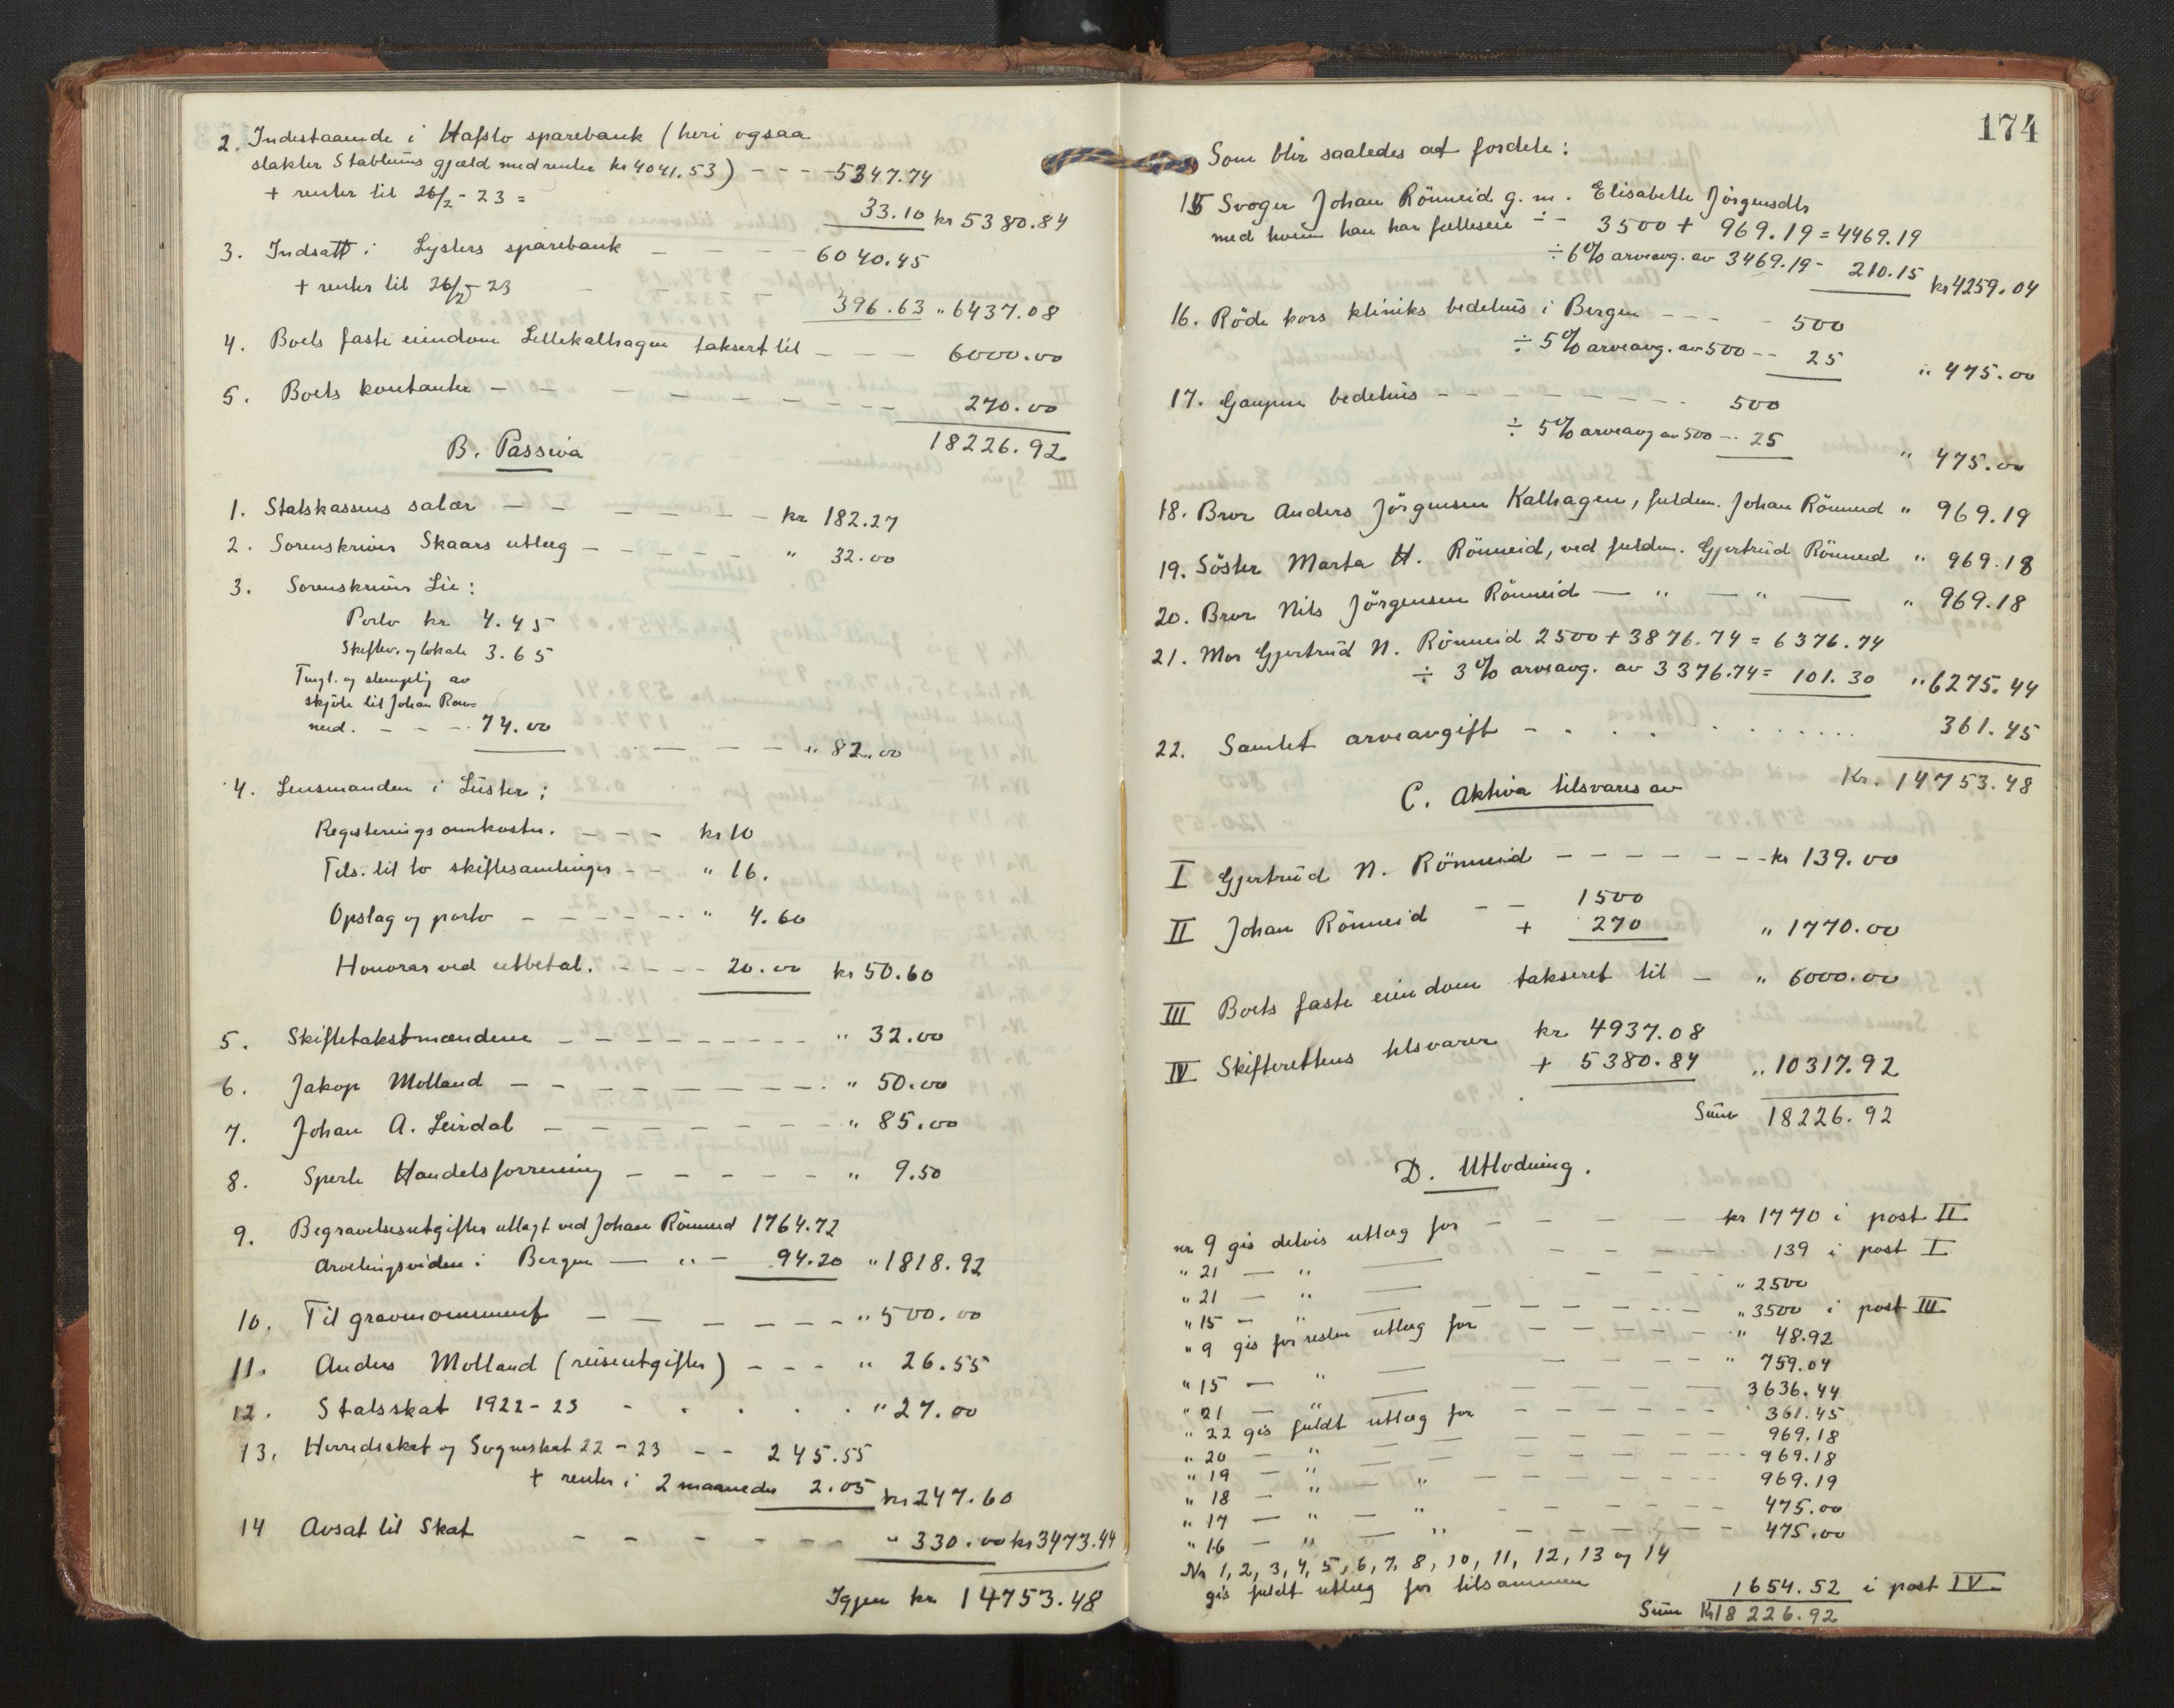 2. Indestaaende i Hafslo sparebank (heri ogsaa
slakter Stablums gjæld med renter kr 4041.53) - - - 5347.74
+ renter til 26/2 - 23 = 33.10 kr 5380.84
3. Indsatt i Lysters sparebank - - - - 6040.45
+ renter til 26/2 - 23 - - 396.63 " 6437.08
4. Boets faste eiendom Lillekalhagen taksert til - - - 6000.00
5. Boets kontanter - - - - - - - - - - 270.00
18226.92
B. Passiva
1. Statskassens salær - - - - - - - kr 182.27
2. Sorenskriver Skaars utlæg - - - - - " 32.00
3. Sorenskriver Lie:
Porto kr 4.45
Skiftev. og lokale 3.65
Tingl. og stempling av
skjöte til Johan Rön-
neid. - - - 74.00 - - - - " 82.00
4. Lensmanden i Luster:
Registeringsomkostn. - - - kr 10
Tils. til to skiftesamlinger - - " 16.
Opslag og porto - - - - - " 4.60
Honorar ved utbetal. - - - - 20.00 kr 50.60
5. Skiftetakstmændene - - - - - - - - - " 32.00
6. Jakop Molland - - - - - - - - - " 50.00
7. Johan A. Leirdal - - - - - - - - " 85.00
8. Sperle Handelsforrening - - - - - - " 9.50
9. Begravelsesutgifter utlagt ved Johan Rönneid 1764.72
Arvetingsviden i Bergen — " - 94.20 " 1818.92
10. Til gravmonument - - - - - - - " 500.00
11. Anders Molland (reiseutgifter) - - - " 26.55
12. Statsskat 1922 - 23 - . . . . " 27.00
13. Herredsskat og Sogneskat 22 - 23 - - 245.55
+ renter i 2 maaneder 2.05 kr 247.60
14 Avsat til Skat - - - - - - - " 330.00 kr 3473.44
Igjen kr 14753.48
174
Som blir saaledes at fordele:
15 Svoger Johan Rönneid g. m. Elisabelle Jörgensdtr
med hvem han har fælleseie ÷ - 3500 + 969.19 = 4469.19
÷ 6% arveavg. av 3469.19 - 210.15 kr 4259.04
16. Röde kors kliniks bedehus i Bergen - - - - 500
÷ 5% arveavg. av 500 - - 25 " 475.00
17. Gaupne bedehus - - - - - - - - 500
÷ 5% arveavg av 500 - - 25 " 475.00
18. Bror Anders Jörgensen Kalhagen, fuldm. Johan Rönneid " 969.19
19. Söster Marta H. Rönneid, ved fuldm. Gjertrud Rönneid " 969.18
20. Bror Nils Jörgensen Rönneid — " — " — " 969.18
21. Mor Gjertrud N. Rönneid 2500 + 3876.74 = 6376.74
÷ 3% arveavg. av 3376.74 = 101.30 " 6275.44
22. Samlet arveavgift - . . . . . . . . . . 361.45
Kr. 14753.48
C. Aktiva tilsvares av
I Gjertrud N. Rönneid - - - - - - - kr 139.00
II Johan Rönneid - - 1500
+ 270 " 1770.00
III Boets faste eiendom takseret til - " 6000.00
IV Skifterettens tilsvarer kr 4937.08
+ 5380.84 " 10317.92
Sum 18226.92
D. Utlodning.
nr 9 gis delvis utlæg for - - - - - kr 1770 i post II
" 21 — " — - - - - 139 i post I
" 21 — " — - - - - " 2500
" 15 — " — - - - - " 3500 i post III
" 9 gis for resten utlæg for - - - - - " 48.92
" 15 — " — - - - - " 759.04
" 21 — " — - - - - 3636.44
" 22 gis fuldt utlæg for - - - - - 361.45
" 20 — " — - - - - - 969.18
" 19 — " — - - - - - 969.18
" 18 — " — " - - - - - 969.19
" 17 — " — " - - - - - 475.00
" 16 — " — " - - - - - 475.00
Nr 1, 2, 3, 4, 5, 6, 7, 8, 10, 11, 12, 13 og 14
gis fuldt utlæg for tilsammen 1654.52 i post IV
Sum Kr 18226.92